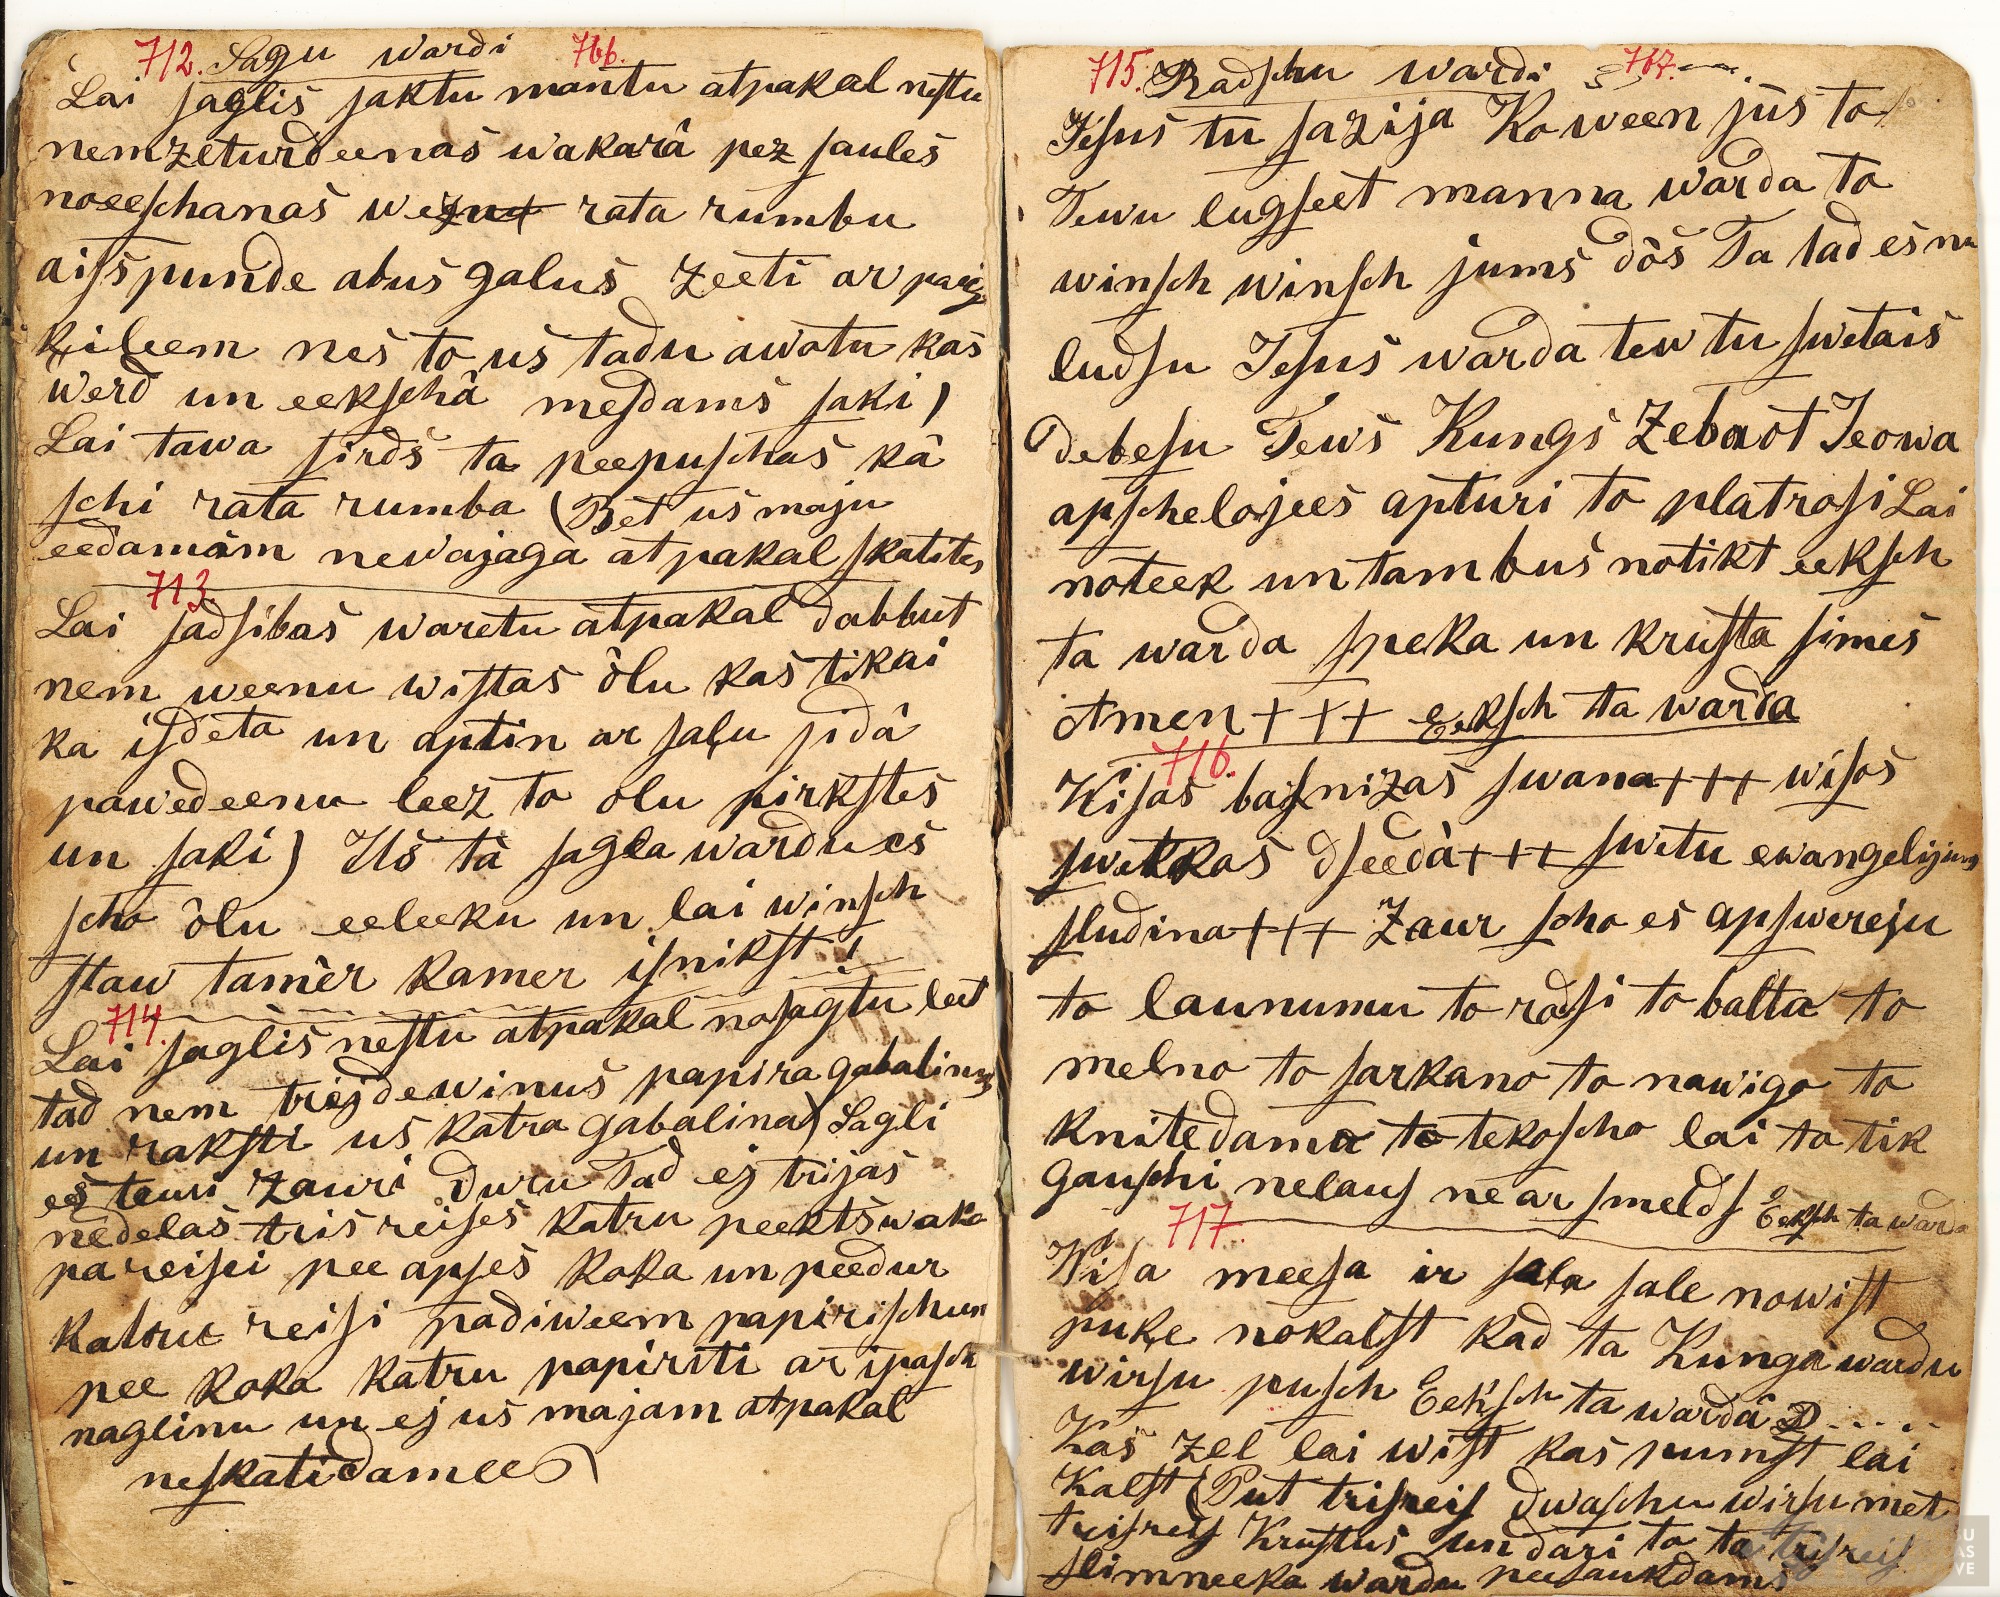 712. Sagu wardi 766.
Lai saglis saktu mantu atpakal nestu
nemzeturdeenas wakarâ pez saules
noeeschanas wezu rata rumbu
aisspunde abus galus zeeti ar
kileem nes to us tadu awotu kas
werd un eekschâ mesdams saki)
Lai tawa sirds ta peepuschas kâ
schi rata rumba (Bet us maju
eedamam newajaga atpakal skatites
713.
Lai sadsibas waretu atpakal dabbut
nem weenu wistas ôlu kas tikai
ka isdeta un aptin ar salu sidâ
pawedeenu leez to olu pirkstes
un saki) Us tâ sagla wardu es
scho ôlu eeleeku un lai winsch
staw tamêr kamer isnikst!
714.
Lai saglis nestu atpakal nosagtu leet
tad nem trejdewinus papira gabalinus
un raksti us katra gabalina) Sagli
es tewi zauri duru Tad ej trijas
nedelas tris reises katru peektswaka
pa reisei pee apses koka un peedur
katru reisi padiweem papirischun
pee koka katru papiriti ar ipasch
naglinu un ej us majam atpakal
neskatidamees)
715. Radschu wardi 767.
Jesus tu sazija Ko ween jûs to
Tewu lugseet manna warda to
winsch winsch jums dôs Ta tad es nu
ludsu Jesus warda tew tu swetais
debesu Tews Kungs Zebaot Jeowa
apschelojees apturi to platrosi Lai
noteek un tam bus notikt eeksch
ta warda speka un krusta simes
Amen + + + Eeksch ta warda
716.
Wisas basnizas swana + + + wisas
swetkas dseedâ + + + swetu ewangelijums
sludina + + + Zaur scho es apswereju
to launumu to rosi to balta to
melno to sarkano to nawigo to
knitedama to tekoscho lai to tik
gauschi nelaus ne ar smelds Eeksch ta warda
717.
Wisa meesa ir sala sale nowist
puke nokalst kad ta Kunga wardu
wirsu pusch Eeksch ta wardâ D....
Kas zel lai wist kas pumst lai
Kalst (Put trisreis dwaschu wirsu met
trisreis Krustus un dari to ta trisreis
slimneeka wardu peesaukdams